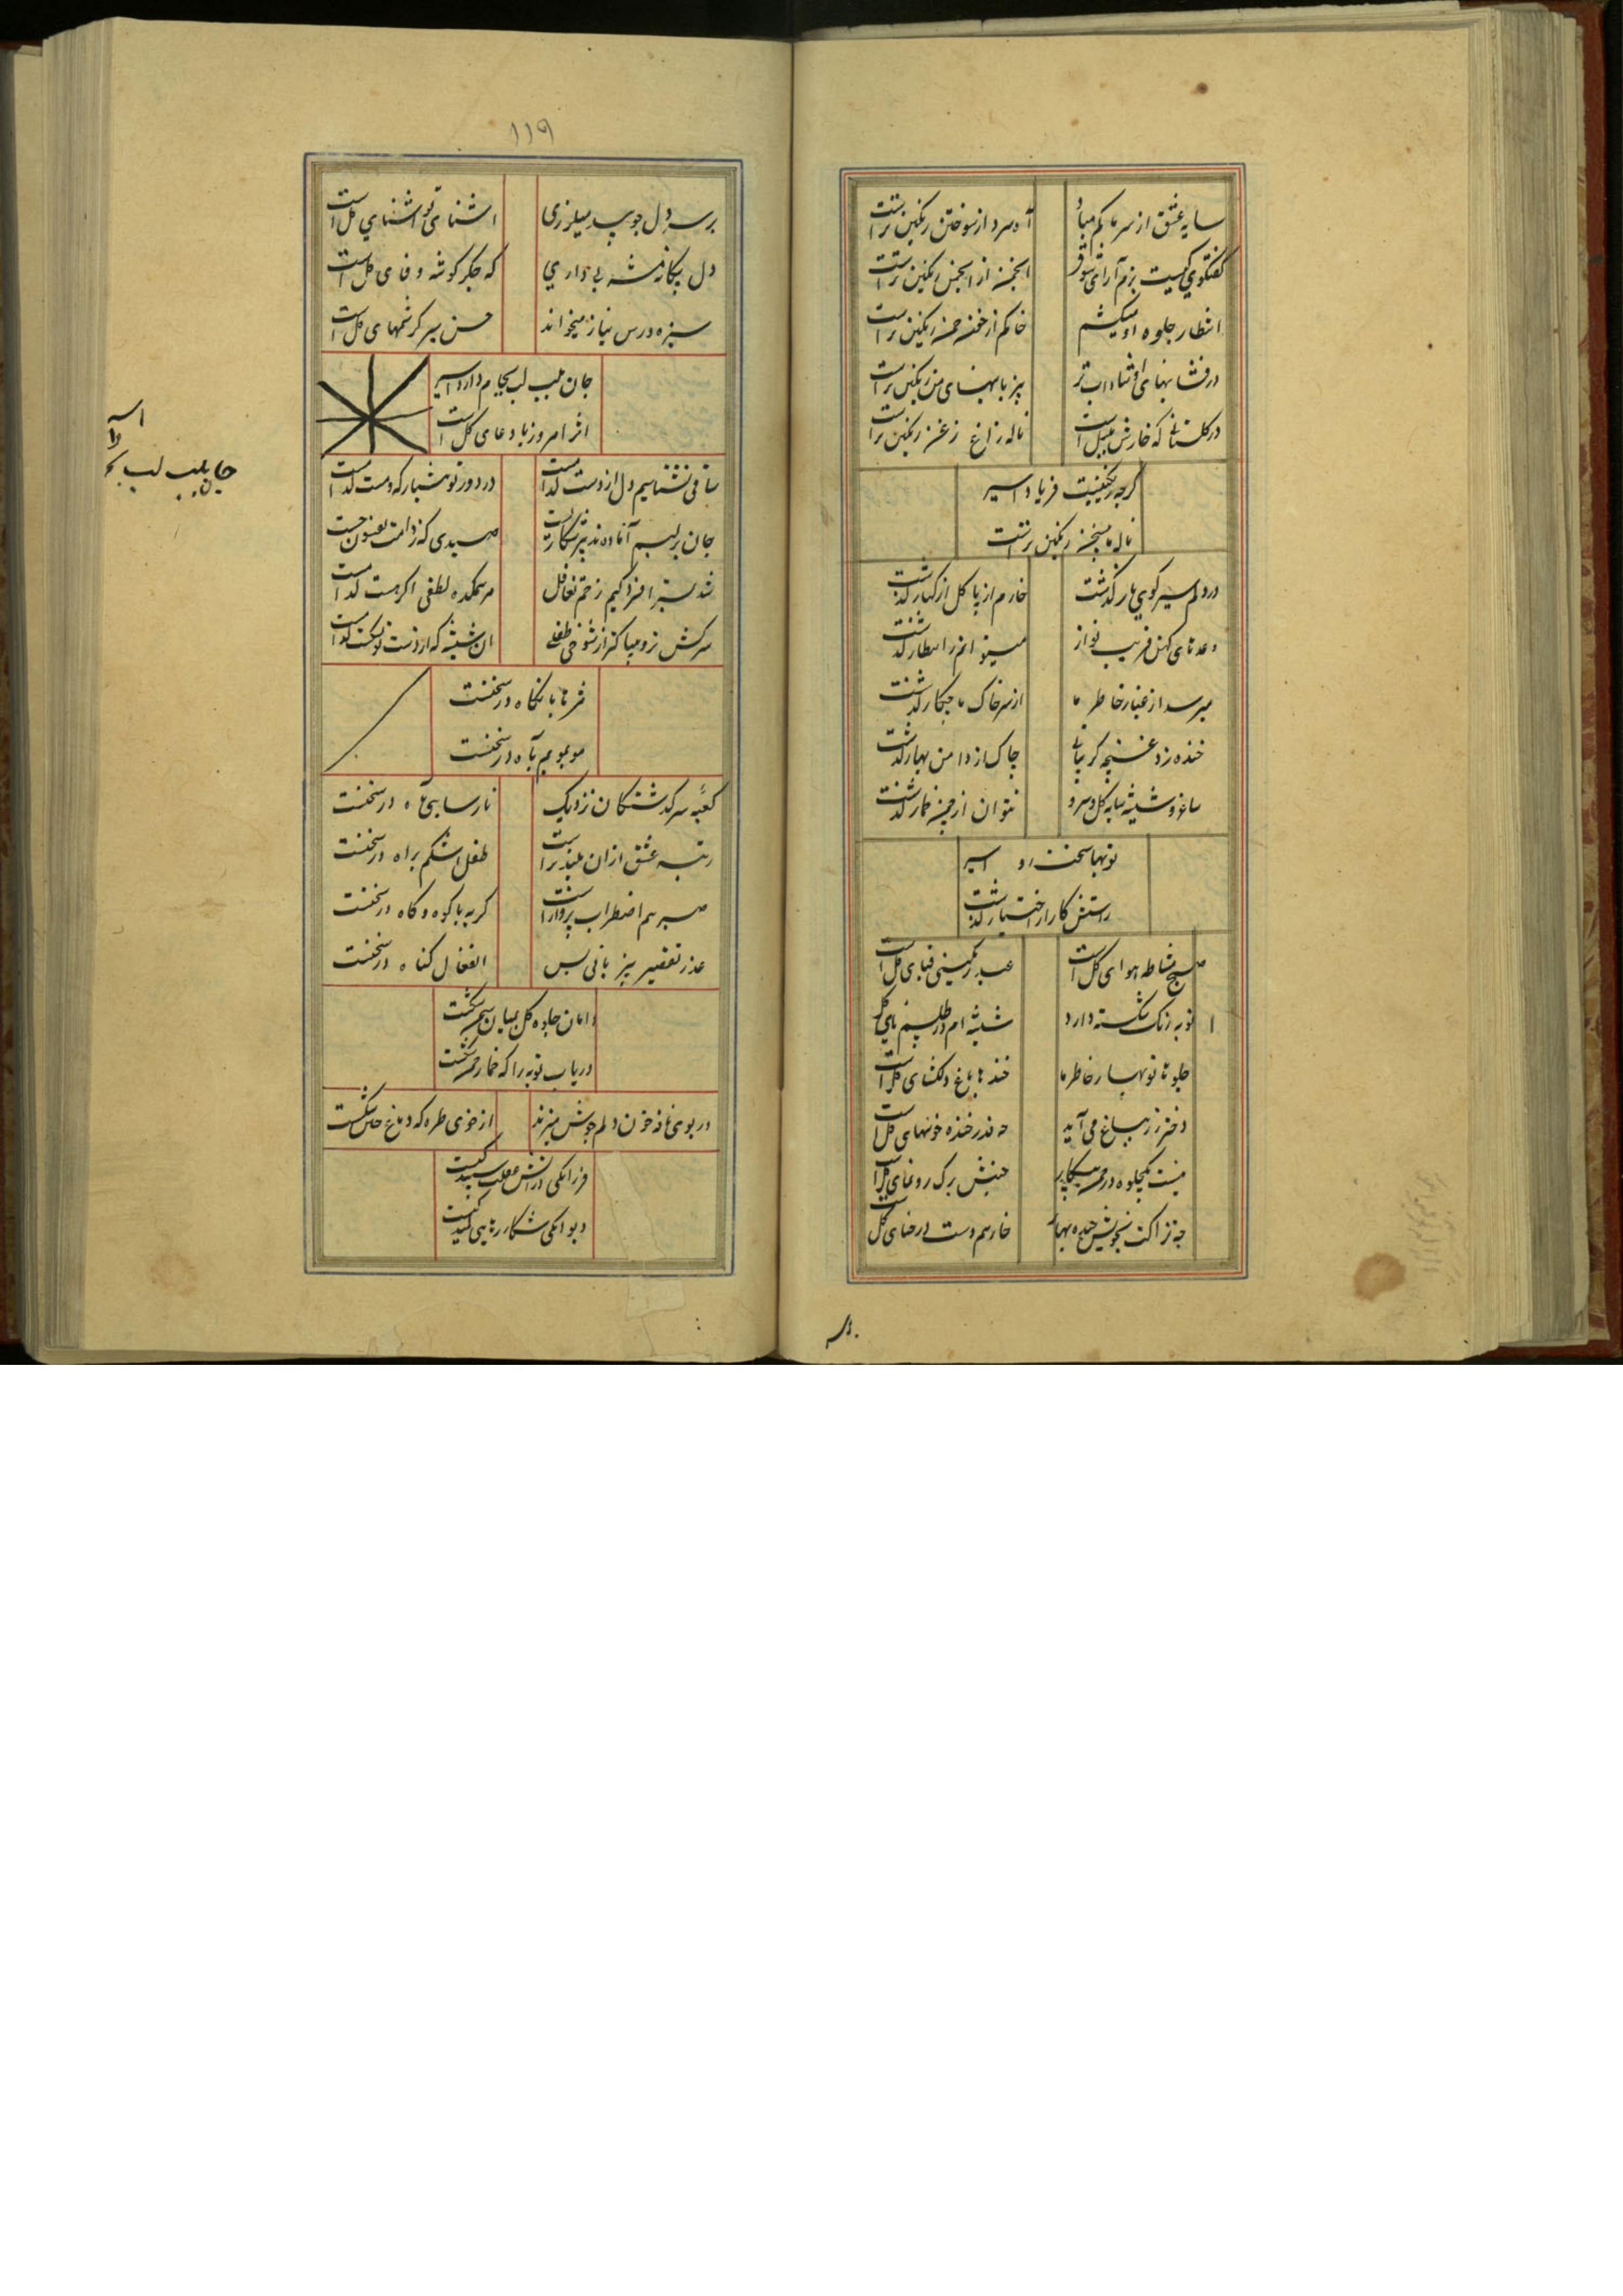 سایه عشق از سر ما کم مباد
آه سرد از سوختن رنگین تر است
گفتگوی کیست بزم آرای شوق
انجمن از انجمن رنگین تر است
انتظار جلوه او میکشم
خاکم از خون چمن رنگین تر است
تر
بیزبانیهای من رنگین تر است
در گلستانی که خارش بلبل است
ناله زاغ و زغن رنگین تر است
گرچه رنگینست فریاد اسیر
ناله رنگین تر است
در دلم سیر کوی یار گذشت
خارم از پا گل از کنار گذشت
وعده های کهن فریب نواز
میتوانم ز انتظار گذشت
میرسد از غبار خاطر ما
از سر خاک ما چکار گذشت
خنده زد غنچه گریبانی
چاک از دامن بهار گذشت
ساغر و شیشه سایه گل و سرو
نتوان از چنین خمار گذشت
نوبهار سخت اسیر
کار از اختیار گذشت
صبح مشاطه هوای گل است
عید رنگینی قبای گل است
توبه رنگ شکسته دارد
شیشه ام در طلسم پای گل
جلوه ها نوبهار خاطر ما
خنده ها باغ دلگشای گل است
دختر رز بباغ می آید
چه قدر خنده خونبهای گل است
نیست یکجلوه در چمن بیکار
جنبش برگ رونمای گل است
چه نزاکت بخویش چیده بهار
خار هم دست در حنای گل
بر
۱۱۹
بر سر دل چو بید میلرزی
آشنای تو آشنای گل است
دل بیگانه داری
که جگر گوشه وفای گل است
سبزه درس نیاز میخواند
حسن سیر کرشمهای گل است
جان بلب لب بجام دارد اسیر
اثر امروز با دعای گل است
ساقی نشناسیم دل از دست کدام است
در دور تو هشیار که و مست کدام است
جان بر لبم آماده
صیدی که ز دامت بفسون جست
شد سبز افزدگیم زخم تغافل
مرهمکده لطفی اگر هست کدام است
سرکش تر و بیباکتر از شوخی طفلی
آن شیشه که از دست تو نشکست کدام است
شرم ها با نگاه در سخنست
مو بمویم بآه در سخنست
کعبه سرگشتگان نزدیک
نارسایی آه در سخنست
رتبه عشق ازان بلندتر است
طفل اشکم براه در سخنست
صبر هم اضطراب پرواز است
گریه با کوه و کاه در سخنست
عذر تقصیر بیزبانی بس
انفعال گناه در سخنست
دامان جلوه گل بمیان سحر شکست
دریاب توبه را که خمار شکست
در بوی نافه خون دلم جوش میزند
از خوی طره که دماغ شکست
فرزانگی دانش عقلت
دیوانگی شکار رهایی
جان بلب لب بجا